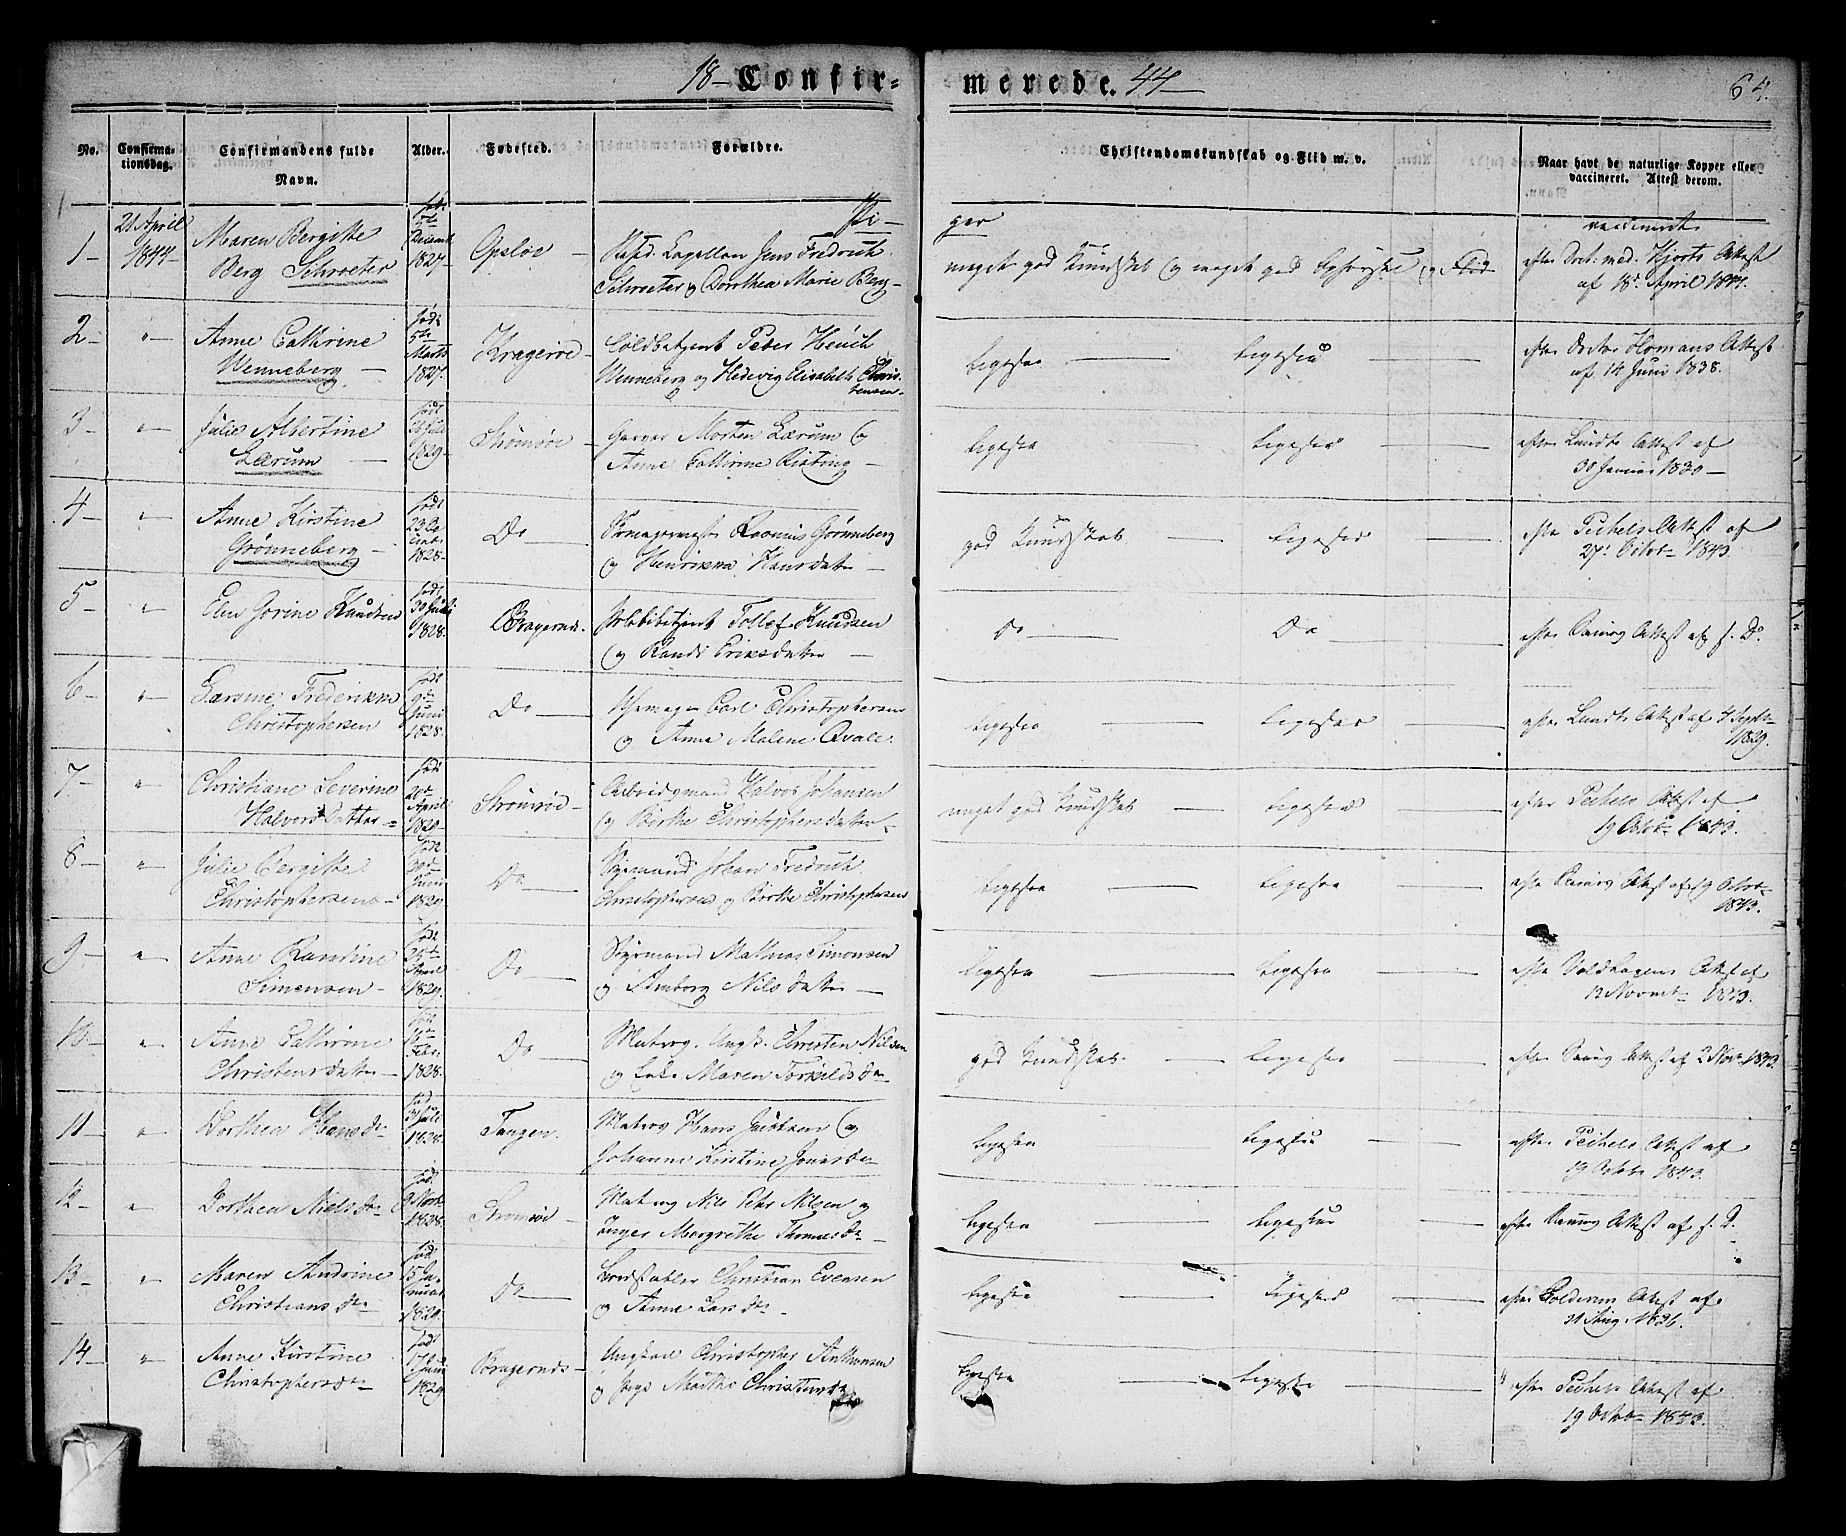 18- Confir-
merede. 44-
64.
No.
Confirma-
tionsdag.
Confirmandens fulde
Navn.
Alder.
Fødested.
Forældre.
Christendomskundskab og Flid m. v.
Naar havt de naturlige Kopper eller
vaccineret. Attest derom.
Pi-
ger
1-
21 April
1844-
Maren Bergitte
Berg Schroeter
Decemb
1827-
Opsloe -
Capellan Jens Fredrich
Schroeter og Dorthea Marie Berg-
meget god Kundskab og meget god og Flid
vaccineret
efter Doct. med. Hjorts Attest
af 18d April 1844.
2-
"-
Anne Cathrine
Wenneberg -
født
5te
Marts
1827.
Kragerøe -
Toldbetjent Peder Henich
Wenneberg og Hedevig Elisabeth Chris-
tensen-
Ligesaa
Ligesaa
efter Doctor Homans Attest
af 14 Juni 1838.
3-
"
Julie Albertine
Lærum -
født
1829-
Strømsøe -
Garver Morten Lærum og
Anne Cathrine Risting -
Ligesaa
Ligesaa
efter Lundts Attest af
30 Januar 1830-
4-
"
Anne Kirstine
Grønneberg -
født
1828-
Do
Skomagermester Rasmus Grønneberg
og Henrikka Hansdatter -
god Kundskab
Ligesaa
efter Peckels Attest af
27 Octbr 1843.
5-
"
Elen Gorine Knudsen
født
30 Juli
1828.
Bragernæs.
Tollef Knudsen
og Randi Eriksdatter -
Do
Do
efter Attest af s. D.
6-
"
Larsine Frederikke
Christophersen
født
9de
Juni
1828.
Do
Carl Christophersen
og Anne Malene Qvale.
Ligesaa
Ligesaa
efter Lundts Attest af 4 Septbr
1829.
7-
"
Christiane Severine
Halvors Datter -
født
20de
April
1829-
Strømsøe -
Arbeidsmand Halvor Johansen
og Birthe Christophersdatter-
meget god Kundskab
Ligesaa
efter Peckels Attest af
19 Octbr 1843.
8-
"
Julie Bergitte
Christophersen -
født
30de
Juni
1829
Do
Styrmand Johan Fredrich
Christophersen og Birthe Christophersen
Ligesaa
Ligesaa
efter Attest af 19 Octbr
1843.
9-
"
Anne Randine
Simensen -
født
April
1829.
Do
Styrmand Mathias Simonsen
og Nilsdatter -
Ligesaa
Ligesaa
efter Attest af
12 Novemb- 1843.
10-
"
Anne Cathrine
Christensdatter -
født
16de
Febr.
1828.
Do
Matros Christen Nilsen
og Maren Torkildsdr
god Kundskab
Ligesaa
efter Attest af 2 Novbr 1843.
11-
"
Dorthea Hansdr
født
31 Juli
1828-
Tangen.
Matros Hans Jacobsen og
Johanne Kirstine Jonsdr-
Ligesaa
Ligesaa
efter Peckels Attest af
19 Octbr 1843.
12-
"
Dorthea Nielsdr
født
1828.
Strømsøe -
Matros Nils Peter Nilsen og
Inger Mergrethe Thomasdr-
Ligesaa
Ligesaa
efter Attest af s. D.
13-
"
Maren Andrine
Christiansdr-
født
15 Ja-
nuar
1829.
Do
Christian Evensen
og Anne Larsdr-
Ligesaa
Ligesaa
efter Attest af
31 Aug. 1836.
14-
"
Anne Kirstine
Christophersdr-
født
17 Juni
1829
Bragernæs-
Christopher Anthonsen
og Marthe Christensdr
Ligesaa
Ligesaa
efter Peckels Attest af
19 Octbr 1843.